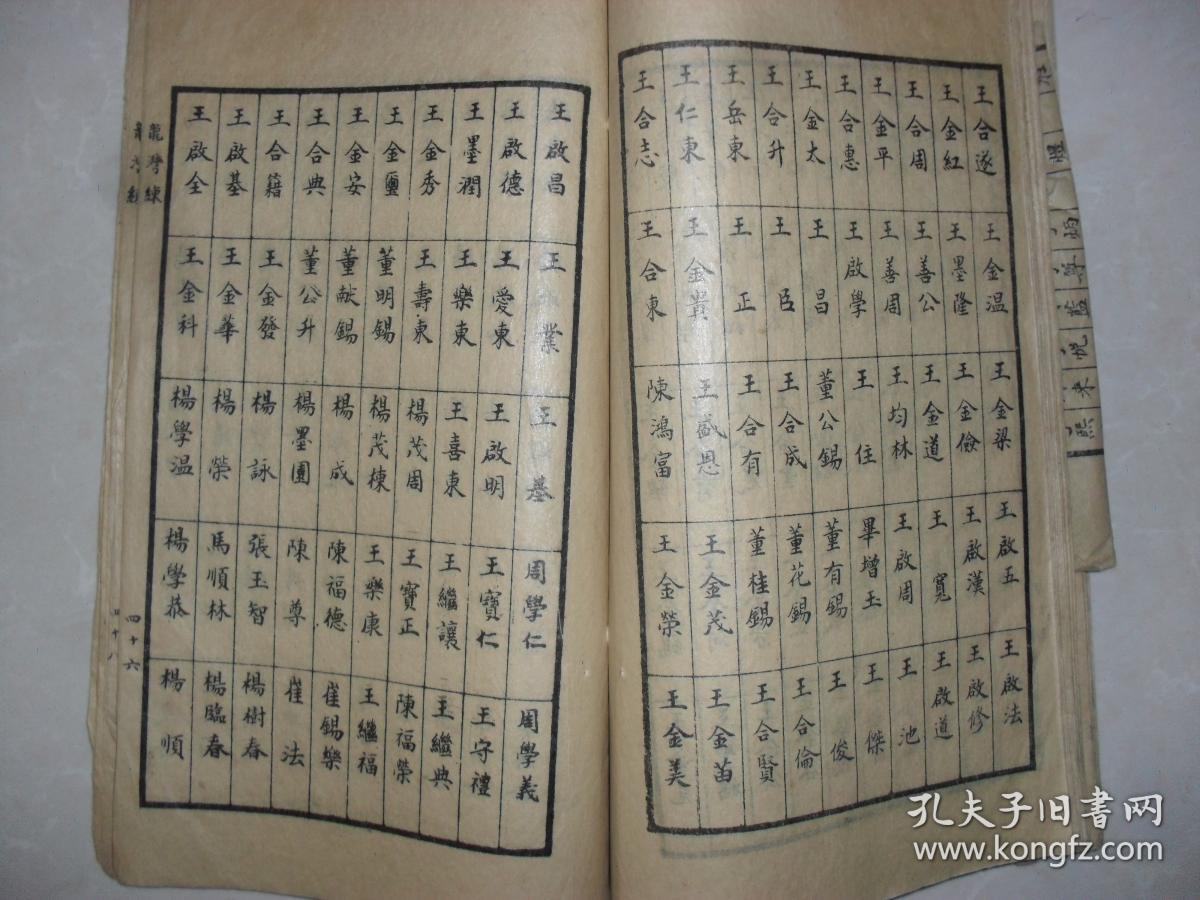 王合遂 王金温 王金梁 王啟五 王啟法
王金紅 王墨隆 王金儉 王啟漢 王啟修
王合周 王善公 王金道 王寬 王啟道
王金平 王善周 王均林 王啟周 王池
王合惠 王啟學 王住 畢增玉 王傑
王金太 王昌 董公錫 董有錫 王俊
王合升 王臣 王合成 董花錫 王合倫
王岳東 王正 王合有 董桂錫 王合賢
王仁東 王金貴 王盛恩 王金茂 王金苗
王合志 王合東 陳鴻富 王金榮 王金美
王啟昌 王業 王基 周學仁 周學義
王啟德 王愛東 王啟明 王寶仁 王守禮
王墨潤 王樂東 王喜東 王繼讓 王繼典
王金秀 王壽東 楊茂周 王寶正 陳福榮
王金璽 董明錫 楊茂棟 王樂康 王繼福
王金安 董献錫 楊成 陳福德 崔錫樂
王合典 董公升 楊墨園 陳尊 崔法
王合籍 王金發 楊詠 張玉智 楊樹春
王啟基 王金華 楊榮 馬順林 楊臨春
王啟全 王金科 楊學温 楊學恭 楊順
龍灣練
四十六
孔夫子旧書网
www.kongfz.com